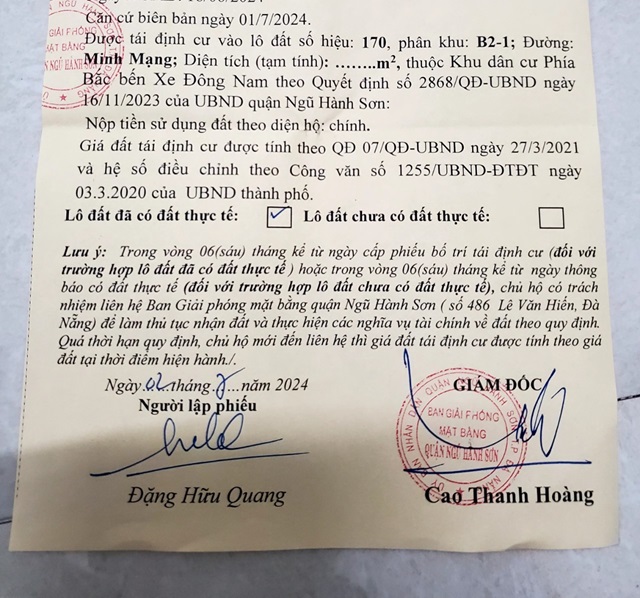 Căn cứ biên bản ngày 01/7/2024.
Được tái định cư vào lô đất số hiệu: 170, phân khu: B2-1; Đường:
Minh Mạng; Diện tích (tạm tính): ........m², thuộc Khu dân cư Phía
Bắc bến Xe Đông Nam theo Quyết định số 2868/QĐ-UBND ngày
16/11/2023 của UBND quận Ngũ Hành Sơn:
Nộp tiền sử dụng đất theo diện hộ: chính.
Giá đất tái định cư được tính theo QĐ 07/QĐ-UBND ngày 27/3/2021
và hệ số điều chỉnh theo Công văn số 1255/UBND-ĐTĐT ngày
03.3.2020 của UBND thành phố.
Lô đất đã có đất thực tế: Lô đất chưa có đất thực tế:
Lưu ý: Trong vòng 06(sáu) tháng kể từ ngày cấp phiếu bố trí tái định cư (đối với
trường hợp lô đất đã có đất thực tế ) hoặc trong vòng 06(sáu) tháng kể từ ngày thông
báo có đất thực tế (đối với trường hợp lô đất chưa có đất thực tế), chủ hộ có trách
nhiệm liên hệ Ban Giải phóng mặt bằng quận Ngũ Hành Sơn ( số 486 Lê Văn Hiến, Đà
Nẵng) để làm thủ tục nhận đất và thực hiện các nghĩa vụ tài chính về đất theo quy định.
Quá thời hạn quy định, chủ hộ mới đến liên hệ thì giá đất tái định cư được tính theo giá
đất tại thời điểm hiện hành./.
Ngày 02 tháng ... năm 2024
Người lập phiếu
GIÁM ĐỐC
BAN GIẢI PHÓNG
MẶT BẰNG
QUẬN NGŨ HÀNH SƠN
Đặng Hữu Quang
Cao Thanh Hoàng